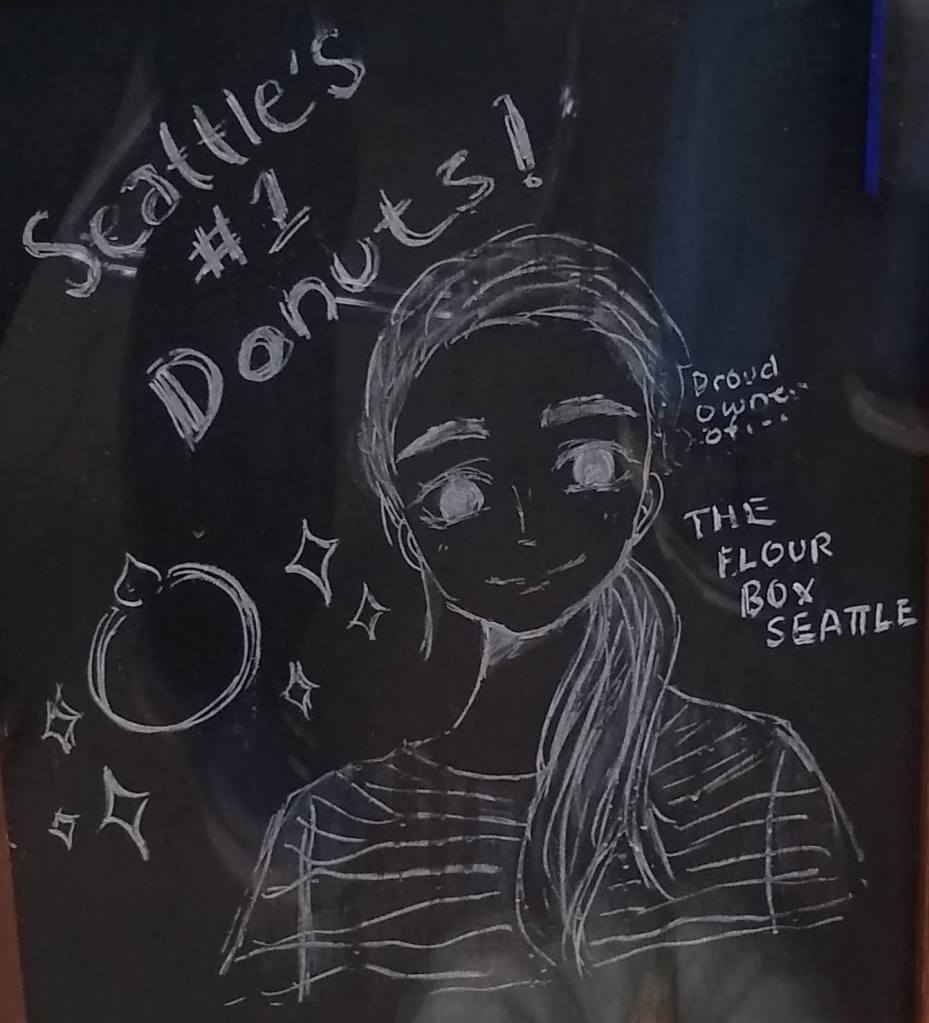 Seattle's
#1
Donuts!
Proud
owner
of...
THE
FLOUR
BOX
SEATTLE